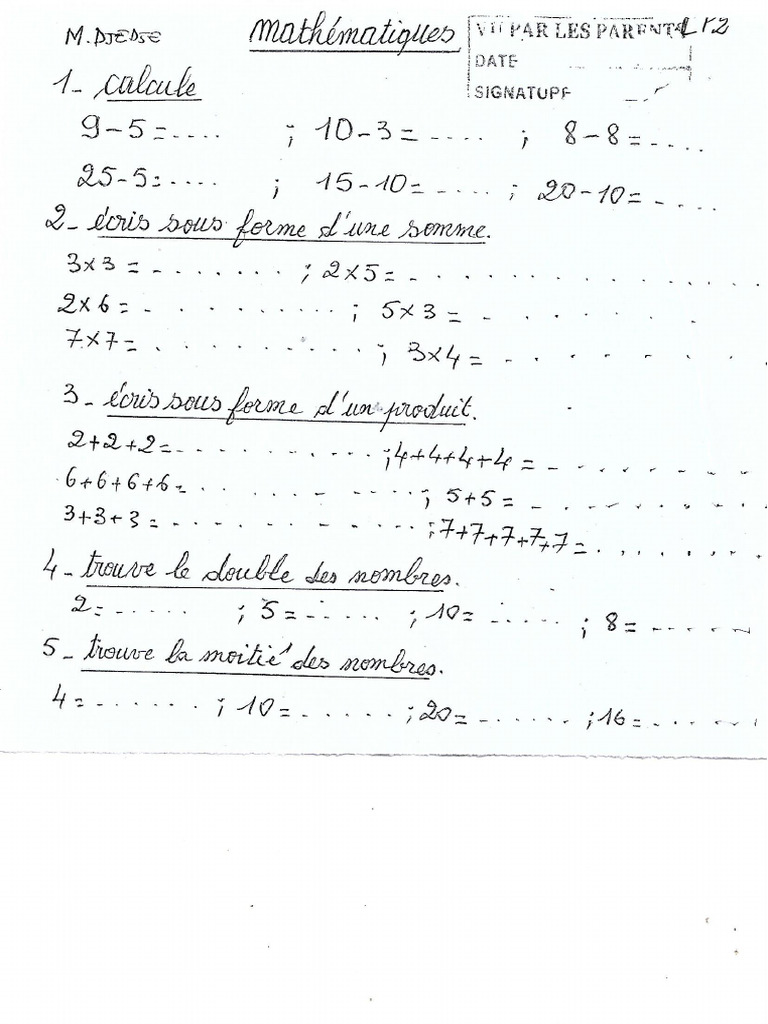 M. DJEDJE mathématiques VU PAR LES PARENTS
DATE
SIGNATURE
1- calcule
9-5=.... ; 10-3=.... ; 8-8=....
25-5=.... ; 15-10=.... ; 20-10=....
2- écris sous forme d'une somme.
3x3=........ ; 2x5=................
2x6=........... ; 5x3=........
7x7=........... ; 3x4=..........
3- écris sous forme d'un produit.
2+2+2=............ ; 4+4+4+4=..........
6+6+6+6=............ ; 5+5=..........
3+3+3=............ ; 7+7+7+7+7=........
4- trouve le double des nombres.
2=...... ; 5=...... ; 10=...... ; 8=.......
5- trouve la moitié des nombres.
4=....... ; 10=...... ; 20=...... ; 16=.......